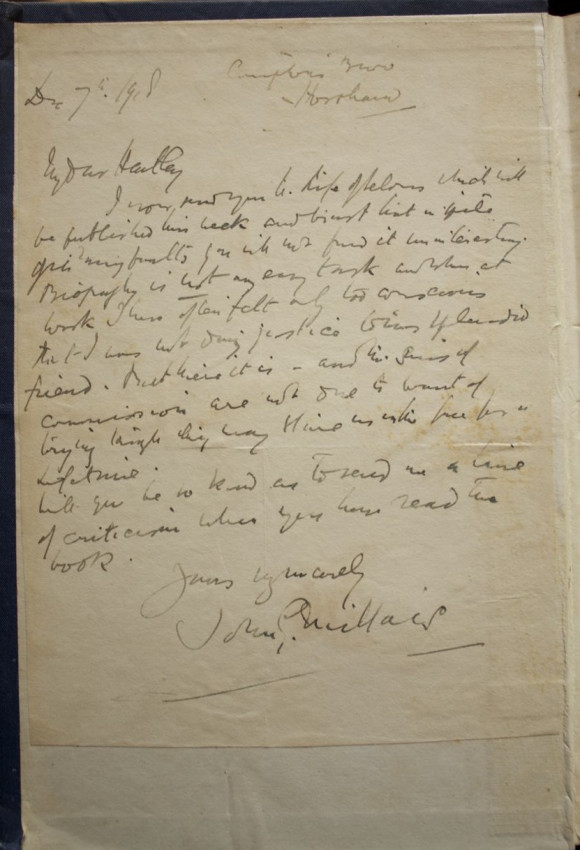 Compton's Brow
Horsham
Dec 7th. 1918
My dear Hartley
I now send you the Life of Selous which will
be published this week and trust that in spite
of its many faults you will not find it uninteresting.
Biography is not an easy task and when at
work I have often felt only too conscious
that I was not doing justice to my splendid
friend. But here it is - and the sins of
commission are not due to want of
trying
lifetime.
Will you be so kind as to send me a line
of criticism when you have read the
book.
Yours sincerely
John G. Millais